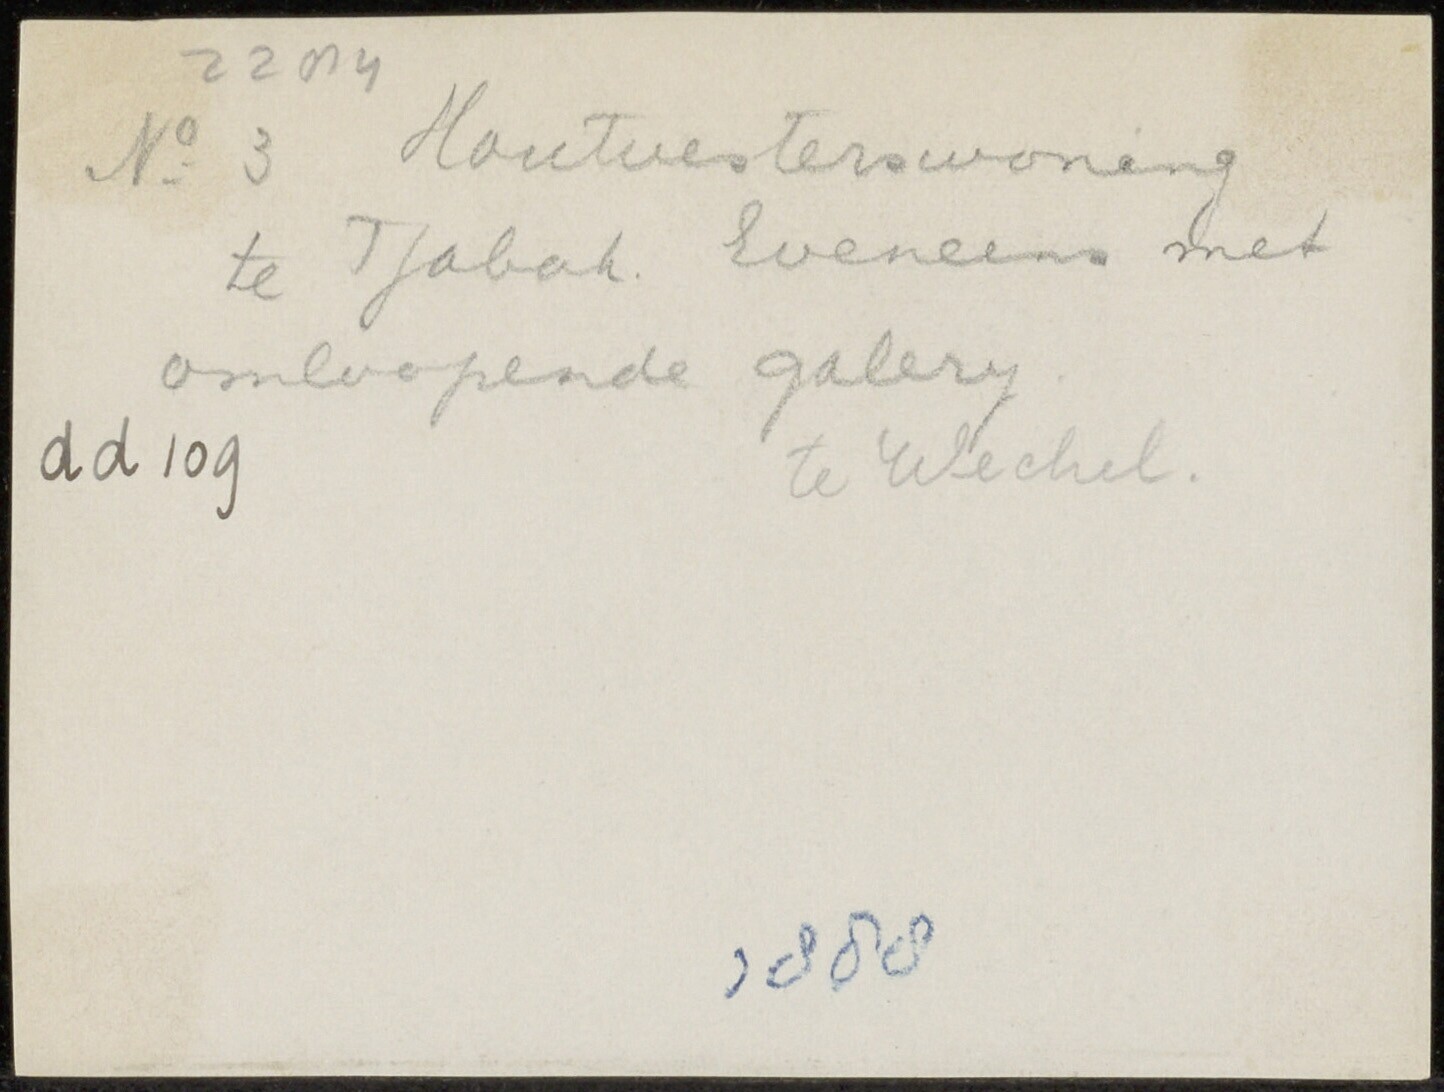 No 3 Houtvesterswoning
te Tjabak. Eveneens met
omloopende galery
dd 109 te Wechel.